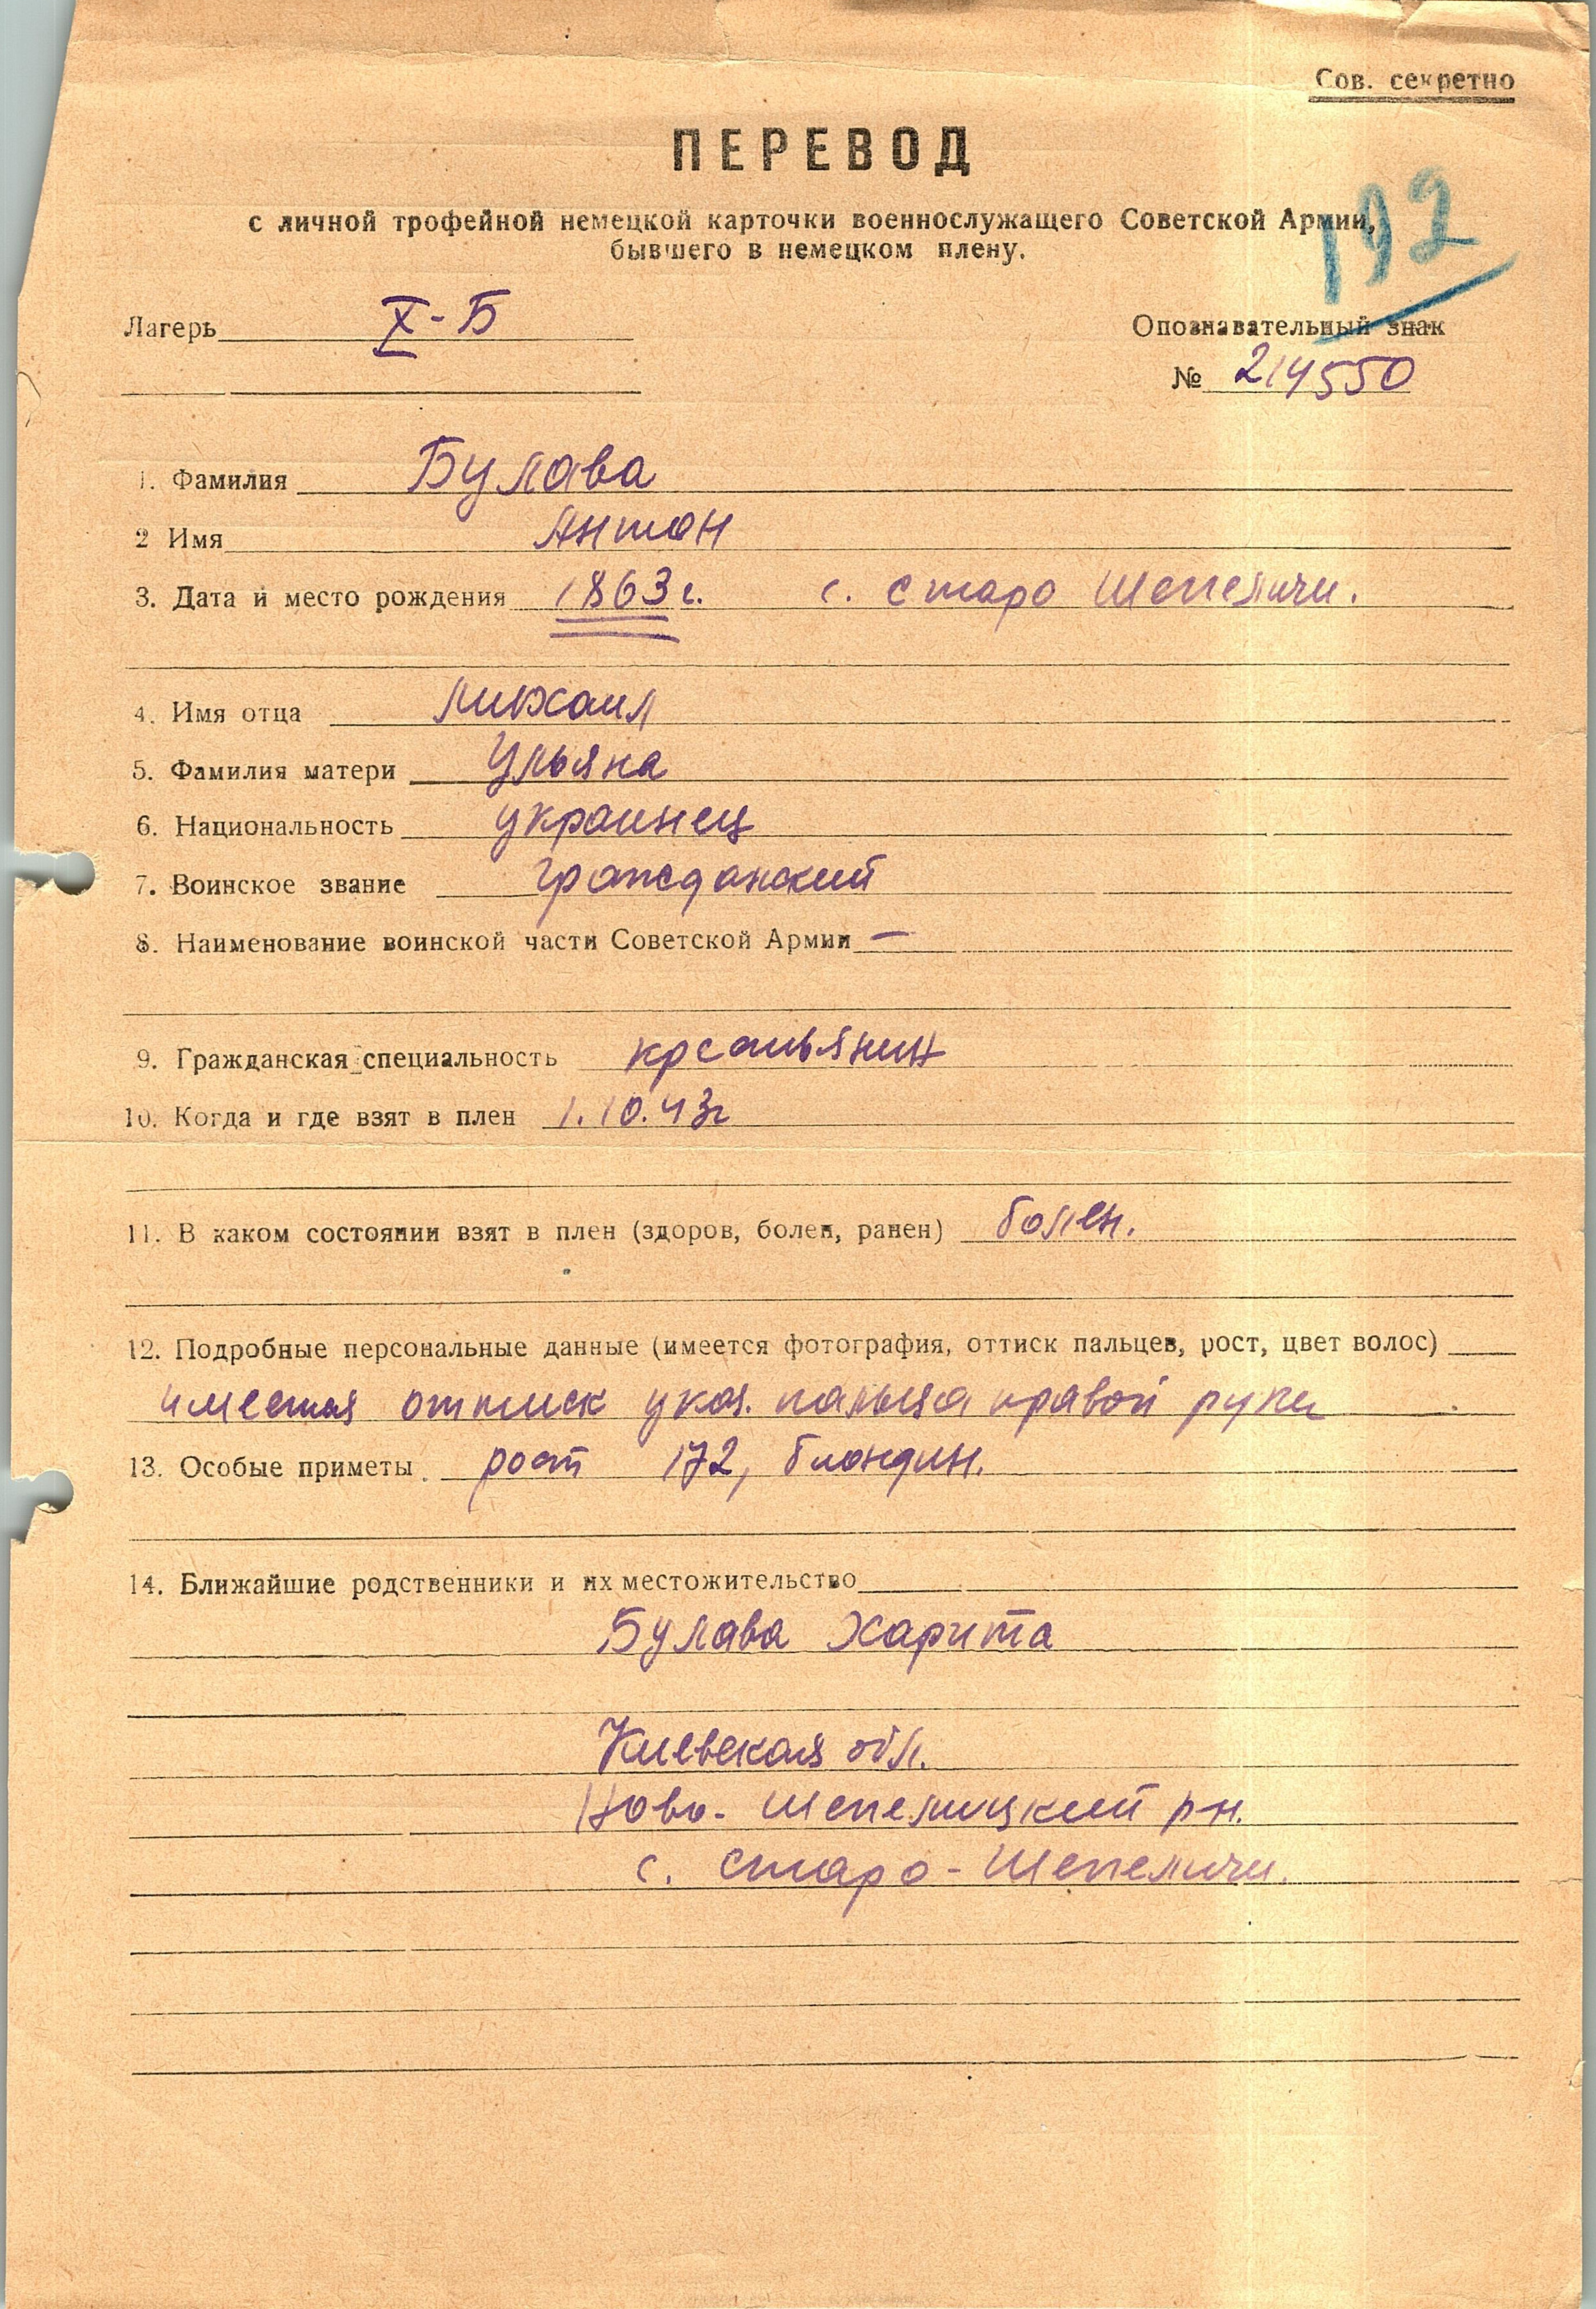 Сов. секретно
ПЕРЕВОД
192
с личной трофейной немецкой карточки военнослужащего Советской Армии,
бывшего в немецком плену.
Лагерь X-Б
Опознавательный знак
№ 214550
1. Фамилия Булава
2 Имя Антон
3. Дата и место рождения 1863 г. с. Старо Шепеличи.
4. Имя отца Михаил
5. Фамилия матери Ульяна
6. Национальность украинец
7. Воинское звание гражданский
8. Наименование воинской части Советской Армии —
9. Гражданская специальность крестьянин
10. Когда и где взят в плен 1.10.43г
11. В каком состоянии взят в плен (здоров, болен, ранен) болен.
12. Подробные персональные данные (имеется фотография, оттиск пальцев, рост, цвет волос)
имеется оттиск указ. пальца правой руки
13. Особые приметы. рост 172, блондин.
14. Ближайшие родственники и их местожительство
Булава Харита
Киевская обл.
Ново-Шепелицкий р-н.
с. Старо-Шепеличи.